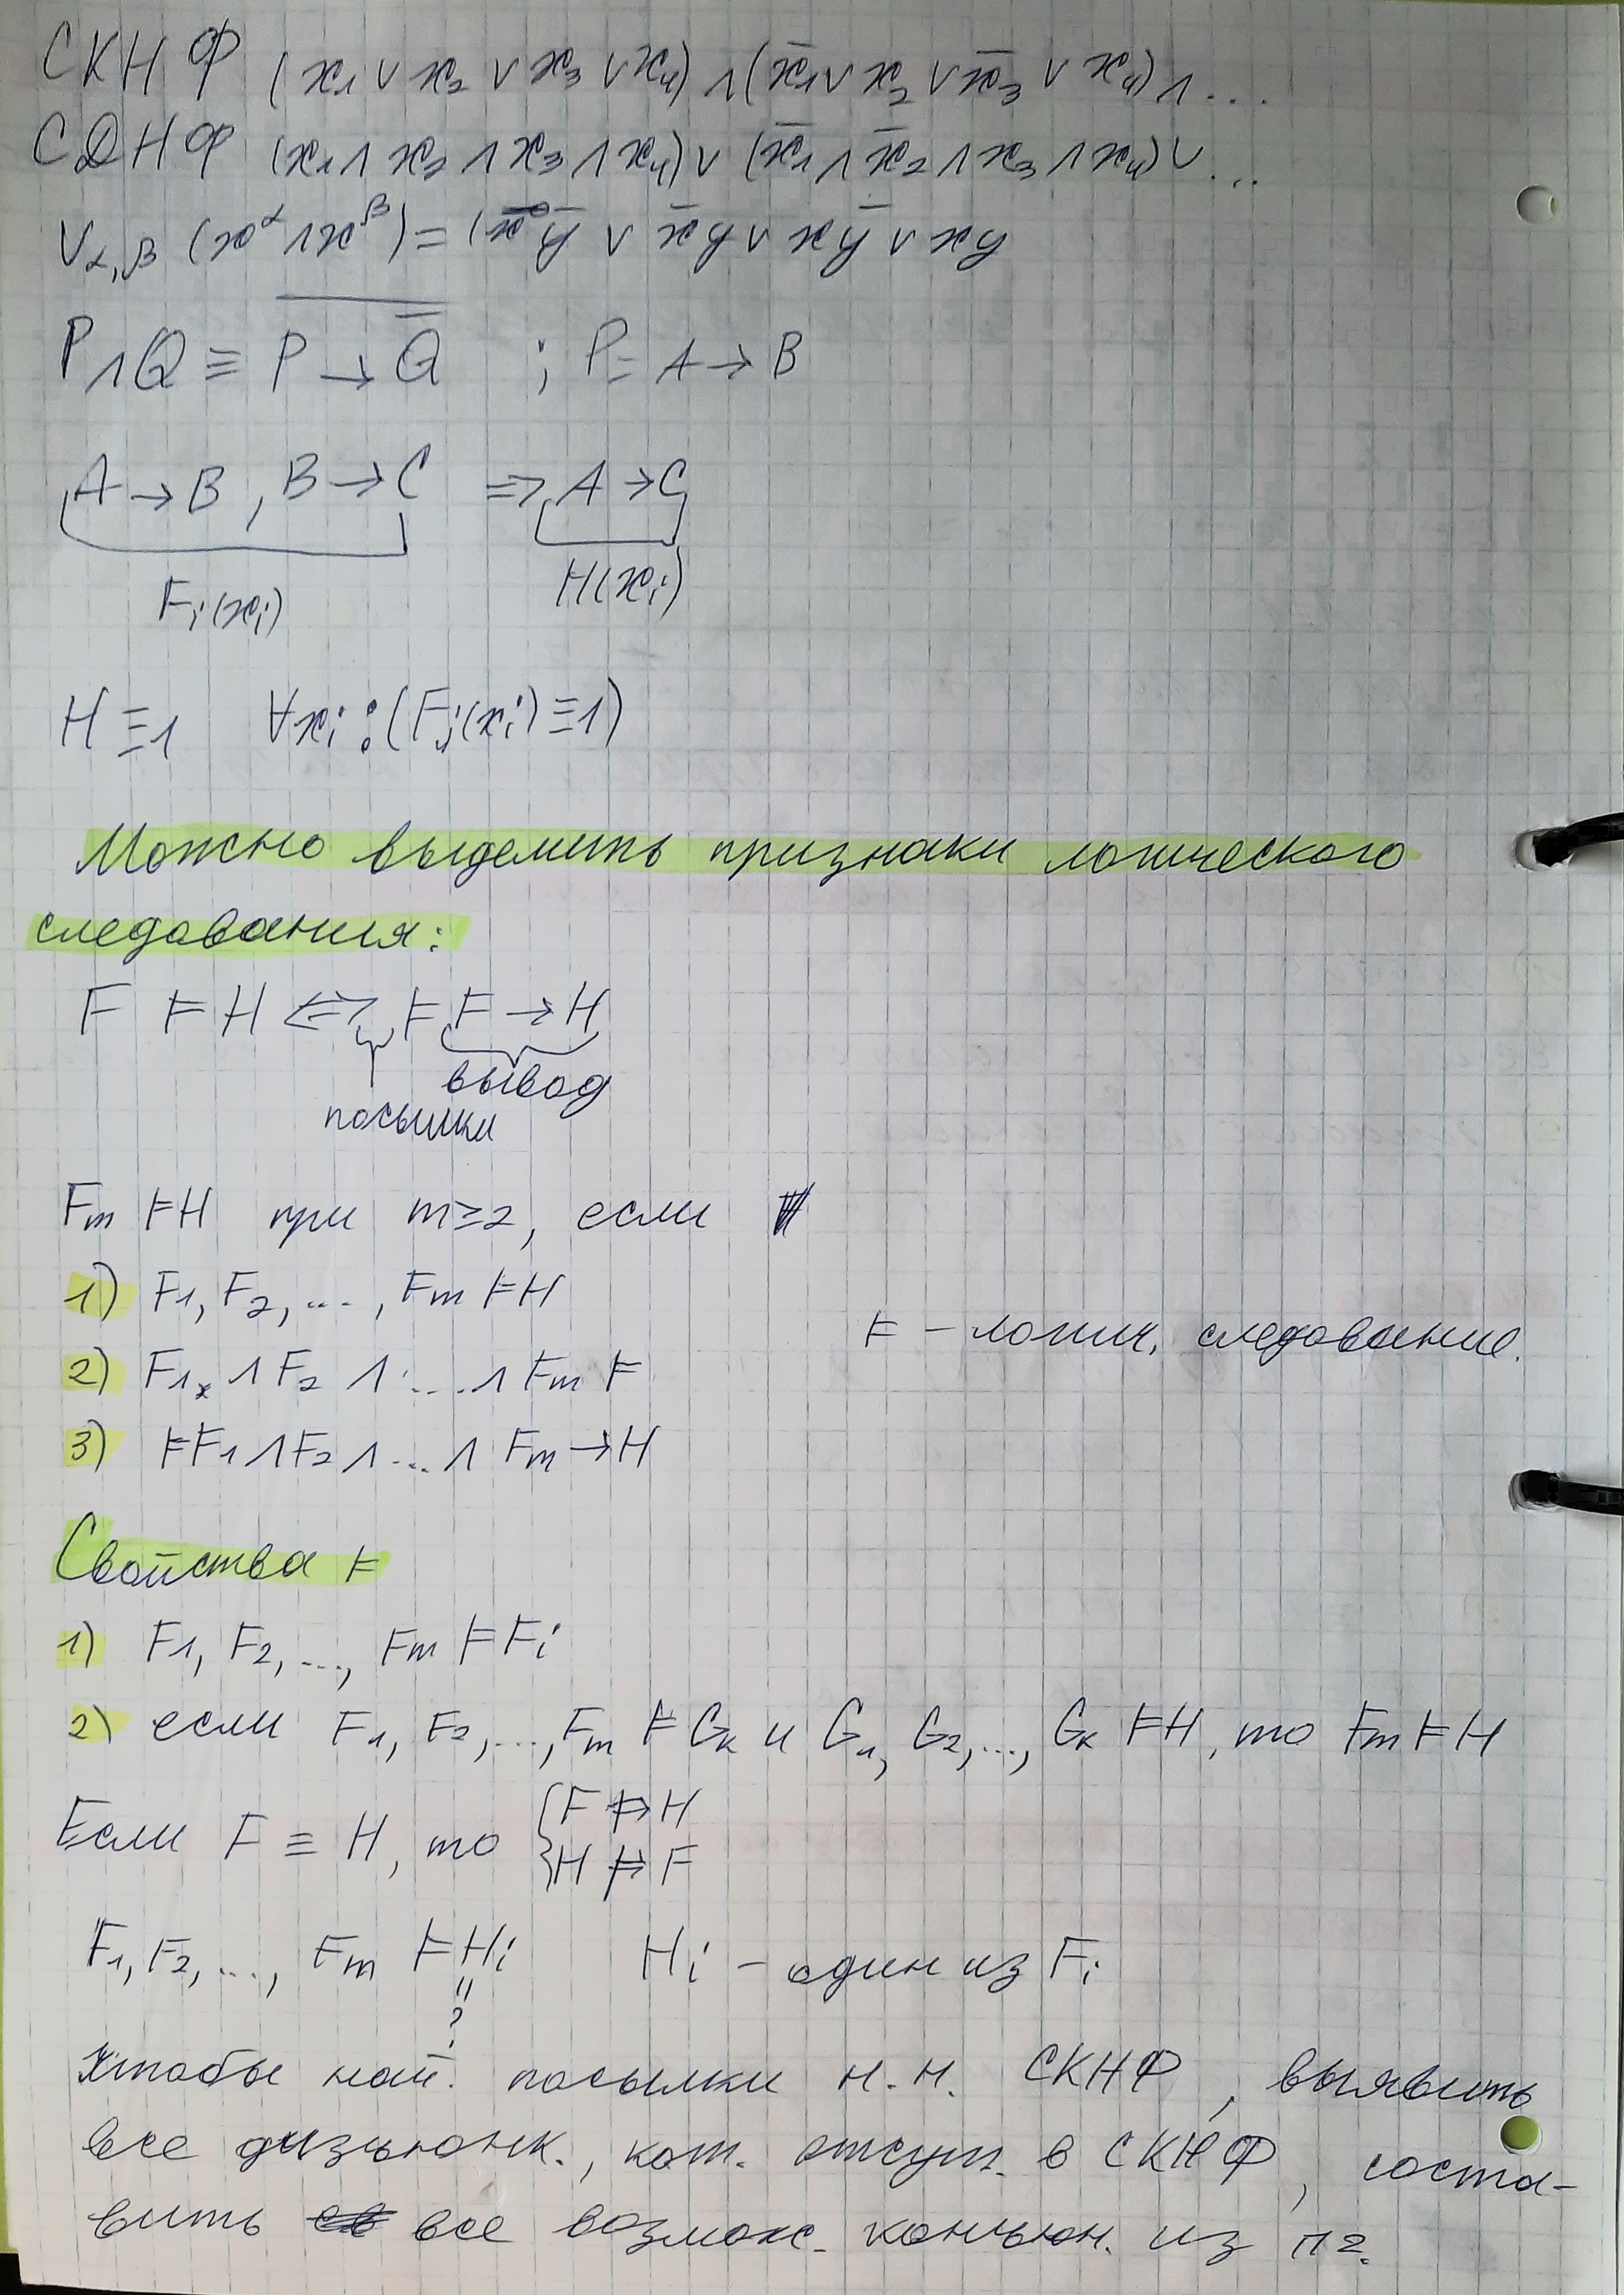 СКНФ (x₁ ∨ x₂ ∨ x₃ ∨ x₄) ∧ (x̄₁ ∨ x₂ ∨ x̄₃ ∨ x₄) ∧ ...
СДНФ (x₁ ∧ x₂ ∧ x₃ ∧ x₄) ∨ (x̄₁ ∧ x̄₂ ∧ x₃ ∧ x₄) ∨ ...
∨α,β (x^α ∧ x^β) = (x̄ȳ ∨ x̄y ∨ xȳ ∨ xy
P ∧ Q ≡ P → Q̄ ; P = A → B
A → B, B → C ⇒ A → C
Fᵢ(xᵢ) H(xᵢ)
H ≡ 1 ∀xᵢ : (Fⱼ(xᵢ) ≡ 1)
Можно выделить признаки логического
следования:
F ⊨ H ⇔ ⊨ F → H
вывод
посылки
Fₘ ⊨ H при m ≥ 2, если
1) F₁, F₂, ..., Fₘ ⊨ H
⊨ – логич. следование.
2) F₁ ∧ F₂ ∧ ... ∧ Fₘ ⊨
3) ⊨ F₁ ∧ F₂ ∧ ... ∧ Fₘ → H
Свойства ⊨
1) F₁, F₂, ..., Fₘ ⊨ Fᵢ
2) если F₁, F₂, ..., Fₘ ⊨ Gₖ и G₁, G₂, ..., Gₖ ⊨ H, то Fₘ ⊨ H
Если F ≡ H, то { F ⊨ H
H ⊨ F
F₁, F₂, ..., Fₘ ⊨ Hᵢ Hᵢ – один из Fᵢ
"
?
Чтобы най. посылки н.н. СКНФ, выявить
все дизъюнк., кот. отсут. в СКНФ, соста-
вить все возмож. конъюн. из п2.